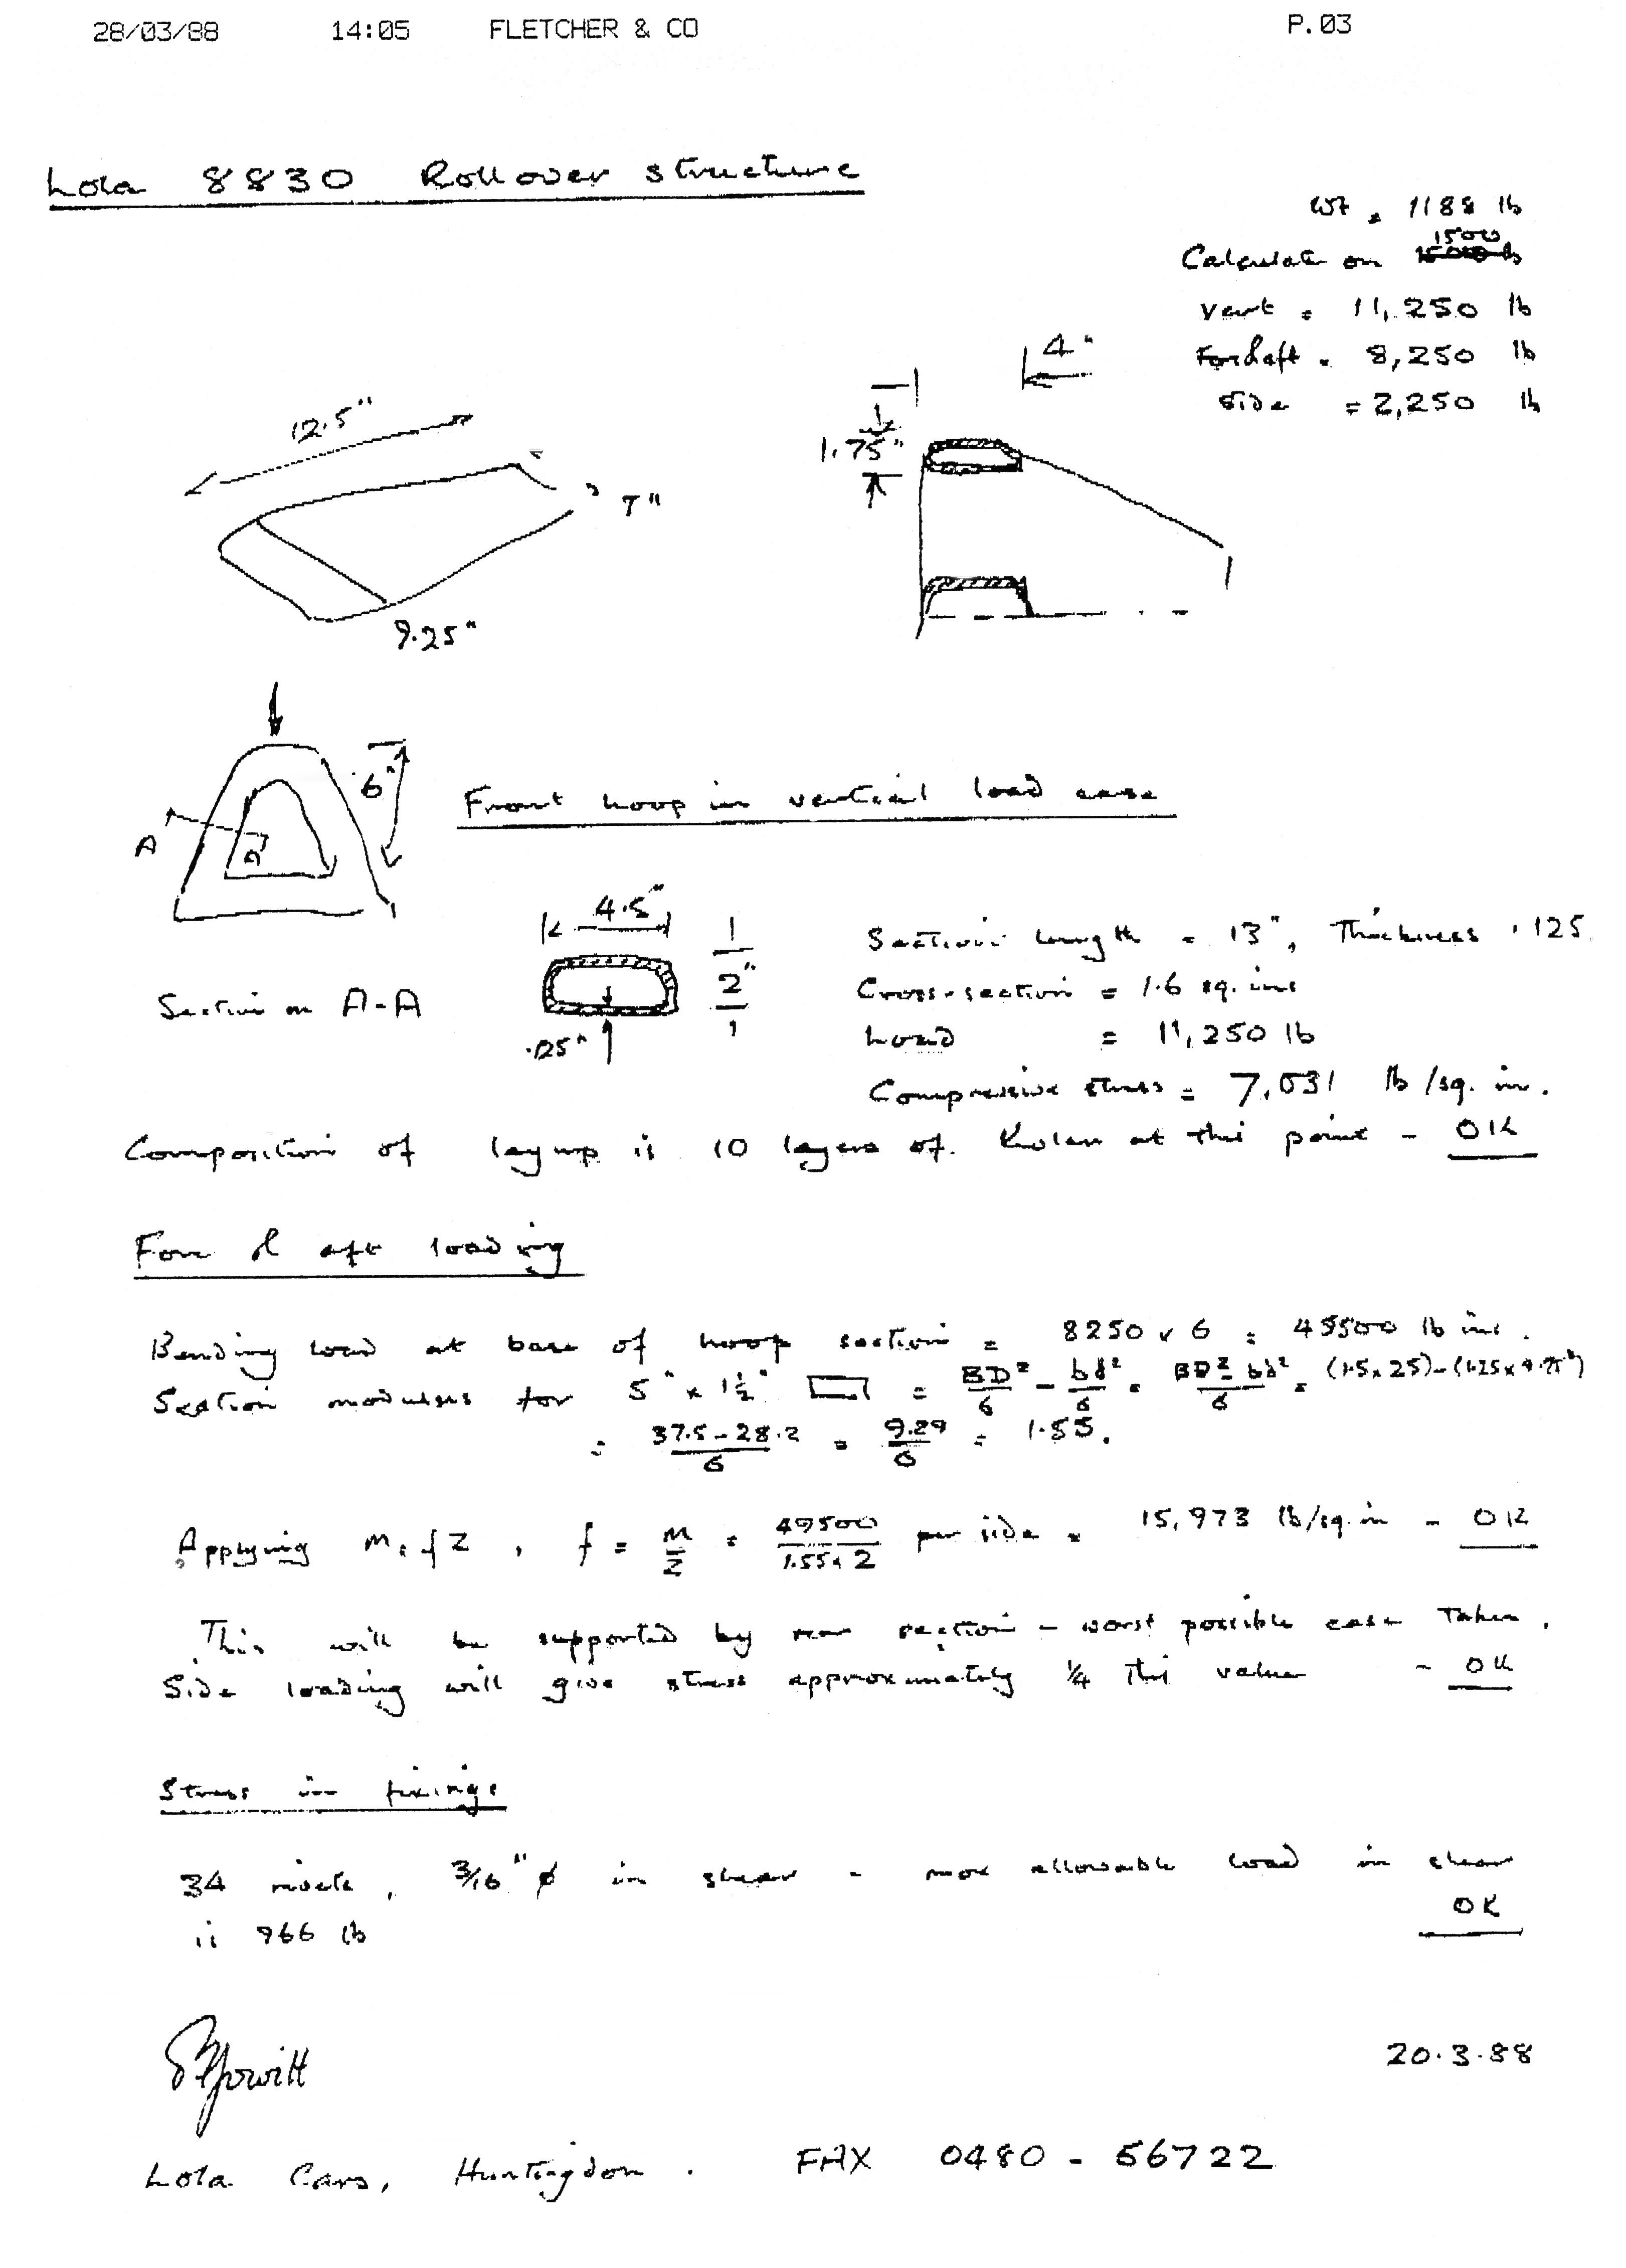 28/03/88 14:05 FLETCHER & CO P.03
Lola 8830 Rollover structure
Wt = 1188 lb
Calculate on 1500
Vert = 11,250 lb
For & aft = 8,250 lb
Side = 2,250 lb
4"
12.5"
1.75"
7"
9.25"
6"
Front hoop in vertical load case
A
A
4.5"
2"
.125"
Section on A-A
Section length = 13", Thickness .125
Cross-section = 1.6 sq. ins
Load = 11,250 lb
Compressive stress = 7,031 lb/sq. in.
Composition of layup is 10 layers of at this point - OK
Fore & aft loading
Bending load at base of hoop section = 8250 x 6 = 49500 lb ins.
Section modulus for 5" x 1½" = BD²/6 - bd²/6 = BD² - bd²/6 = (1.5 x 25) - (1.25 x 4.75²)
= 37.5 - 28.2/6 = 9.29/6 = 1.55.
Applying M = fZ, f = M/Z = 49500/1.55 x 2 per side = 15,973 lb/sq. in - OK
This will be supported by rear section - worst possible case taken.
Side loading will give stress approximately ¼ this value - OK
Stress in fixings
34 rivets, 3/16" ø in shear - max allowable load in shear
is 966 lb OK
20.3.88
Lola Cars, Huntingdon. FAX 0480 - 56722